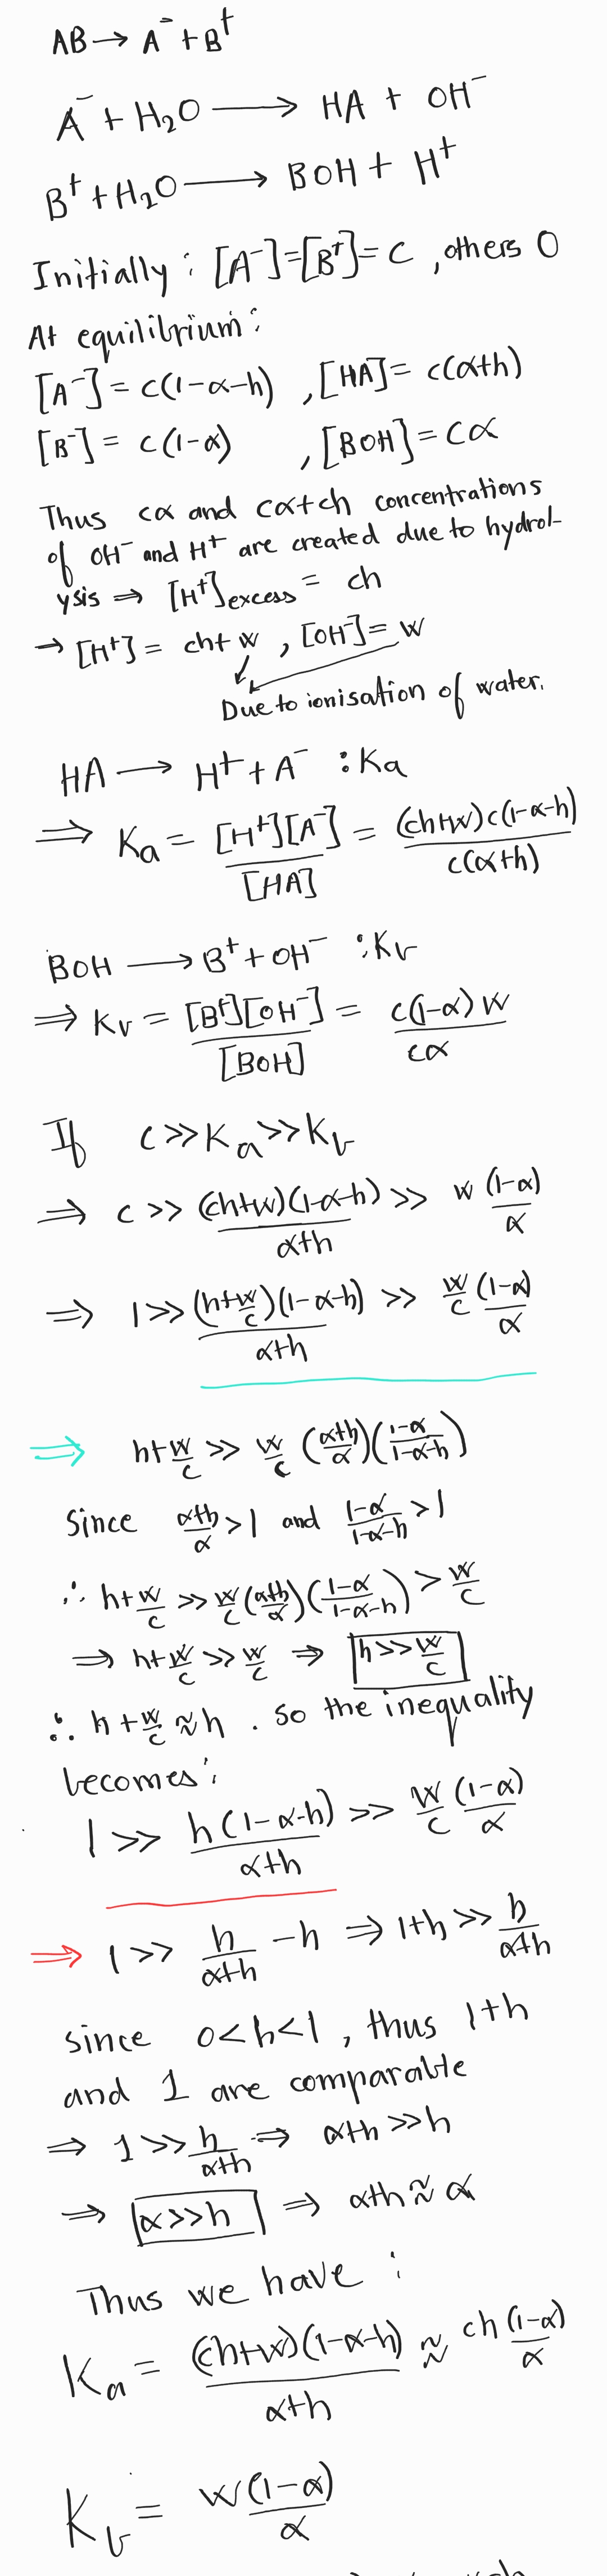 AB → A⁻ + B⁺
A⁻ + H₂O ⟶ HA + OH⁻
B⁺ + H₂O ⟶ BOH + H⁺
Initially : [A⁻]=[B⁺]= C , others 0
At equilibrium :
[A⁻] = c(1-α-h) , [HA] = c(α+h)
[B⁻] = c(1-α) , [BOH] = Cα
Thus cα and cα+ch concentrations
of OH⁻ and H⁺ are created due to hydrol-
ysis ⇒ [H⁺]excess = ch
→ [H⁺] = ch+w , [OH⁻] = w
Due to ionisation of water.
HA ⟶ H⁺ + A⁻ : Ka
⇒ Ka = [H⁺][A⁻]/[HA] = (ch+w)c(1-α-h)/c(α+h)
BOH ⟶ B⁺ + OH⁻ : Kb
⇒ Kb = [B⁺][OH⁻]/[BOH] = c(1-α)w/cα
If c >> Ka >> Kb
⇒ c >> (ch+w)(1-α-h)/α+h >> w (1-α)/α
⇒ 1 >> (h+w/c)(1-α-h)/α+h >> w/c (1-α)/α
⇒ h+w/c >> w/c (α+h/α)(1-α/1-α-h)
Since α+h/α > 1 and 1-α/1-α-h > 1
∴ h+w/c >> w/c (α+h/α)(1-α/1-α-h) > w/c
⇒ h+w/c >> w/c ⇒ h >> w/c
∴ h + w/c ≈ h . So the inequality
becomes :
1 >> h(1-α-h)/α+h >> w/c (1-α)/α
⇒ 1 >> h/α+h - h ⇒ 1+h >> h/α+h
Since 0<h<1 , thus 1+h
and 1 are comparable
⇒ 1 >> h/α+h ⇒ α+h >> h
⇒ α >> h ⇒ α+h ≈ α
Thus we have :
Ka = (ch+w)(1-α-h)/α+h ≈ ch (1-α)/α
Kb = w(1-α)/α